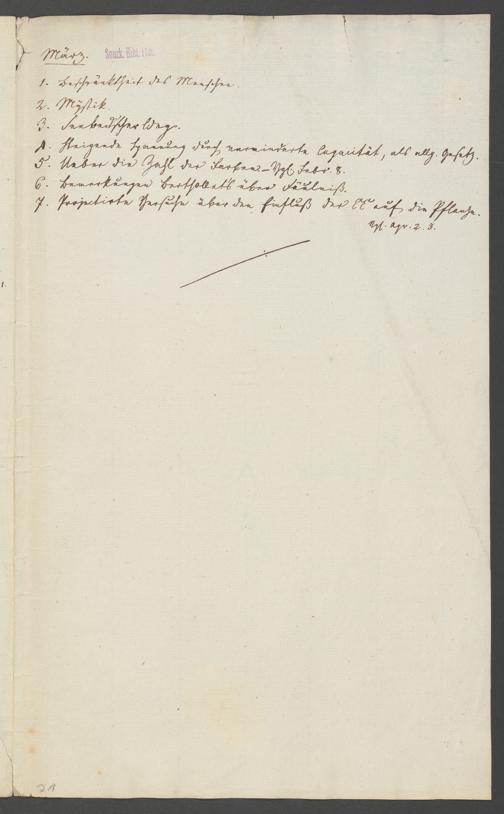 März.
Senck. Bibl. Ffm.
1. Beschränktheit des Menschen.
2. Mystik.
3. Seebeck'scher
4. Steigende Spannung durch verminderte Capacität, als allg. Gesetz.
5. Ueber die Zahl der Farben. – Vgl. Febr. 8.
6. Bemerkungen Berthollets über Fäulniß.
7. Projectirte Versuche über den Einfluß der auf die Pflanze.
Vgl. Apr. 2. 3.
1.
21